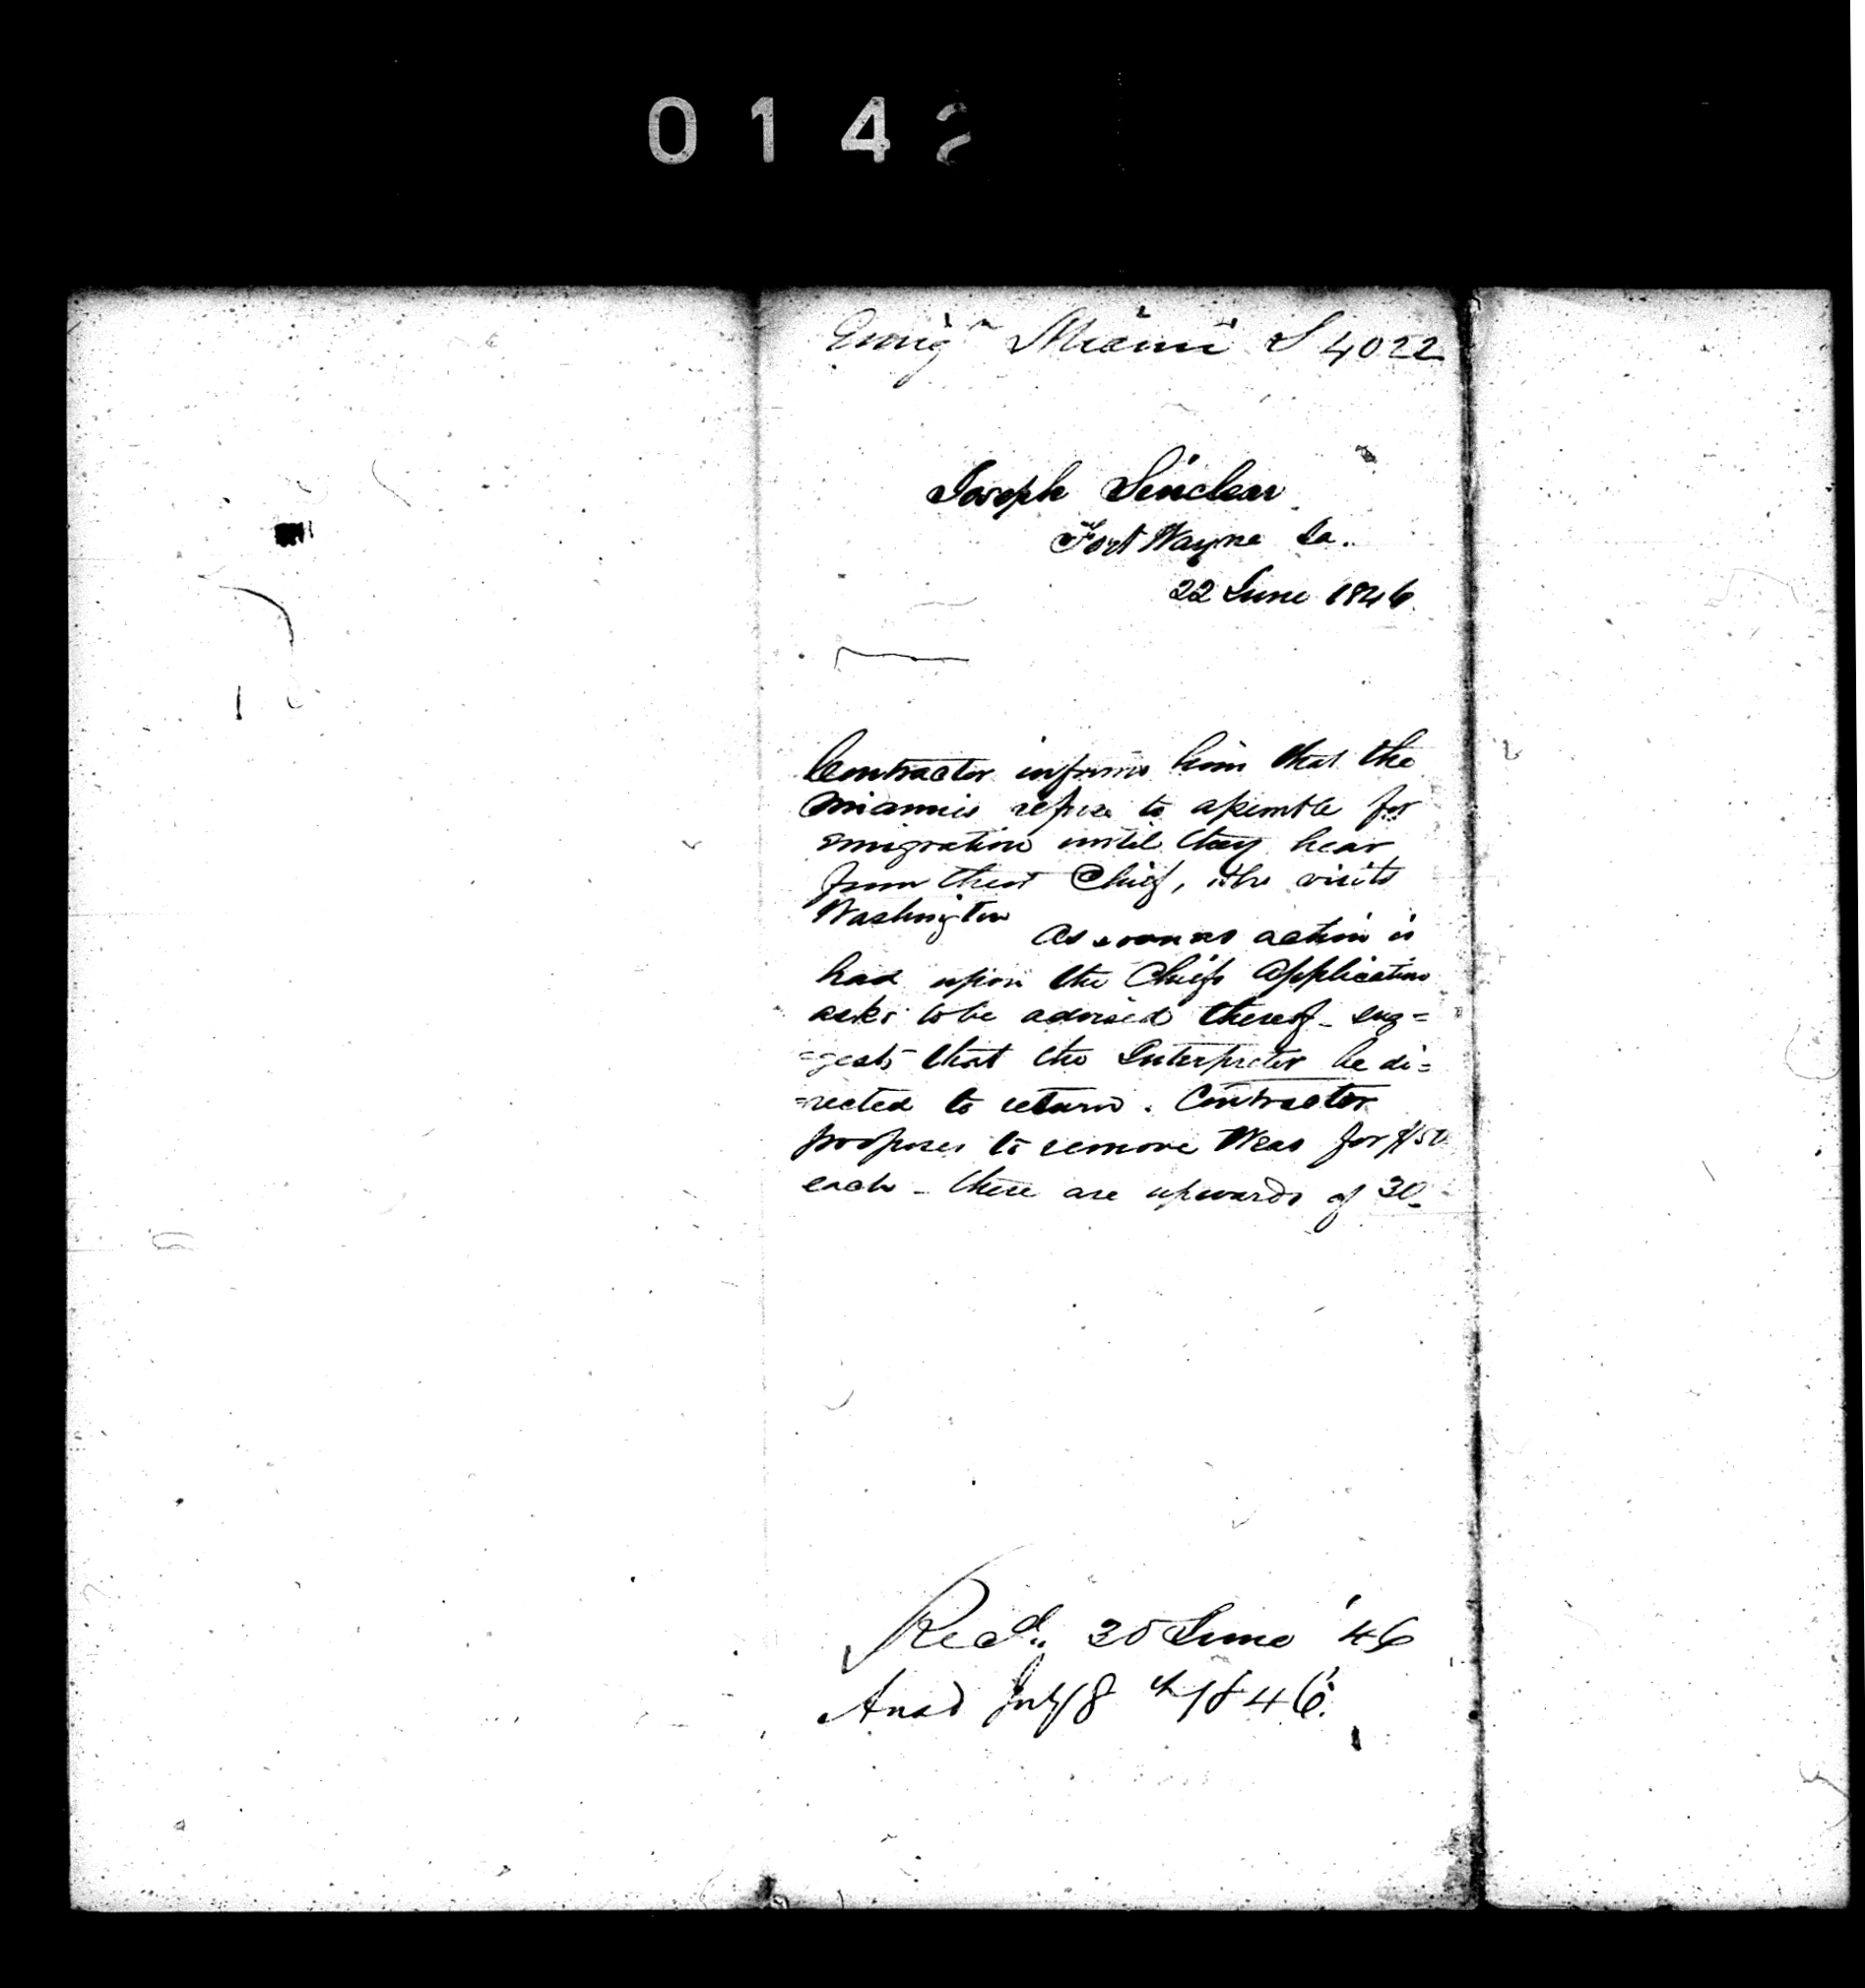 0142
Emign Miami S 4022
Joseph Sinclear
Fort Wayne Ia.
22 June 1846
Contractor informs him that the
Miamies refuse to assemble for
emigration until they hear
from their Chief, who visits
Washington
As soon as action is
had upon the Chiefs application
asks to be advised thereof - sug=
=gests that the Interpreter be di=
=rected to return. Contractor
proposes to remove Weas for $50
each - there are upwards of 30-
Recd. 30 June '46
Ansd July 8 th 1846.